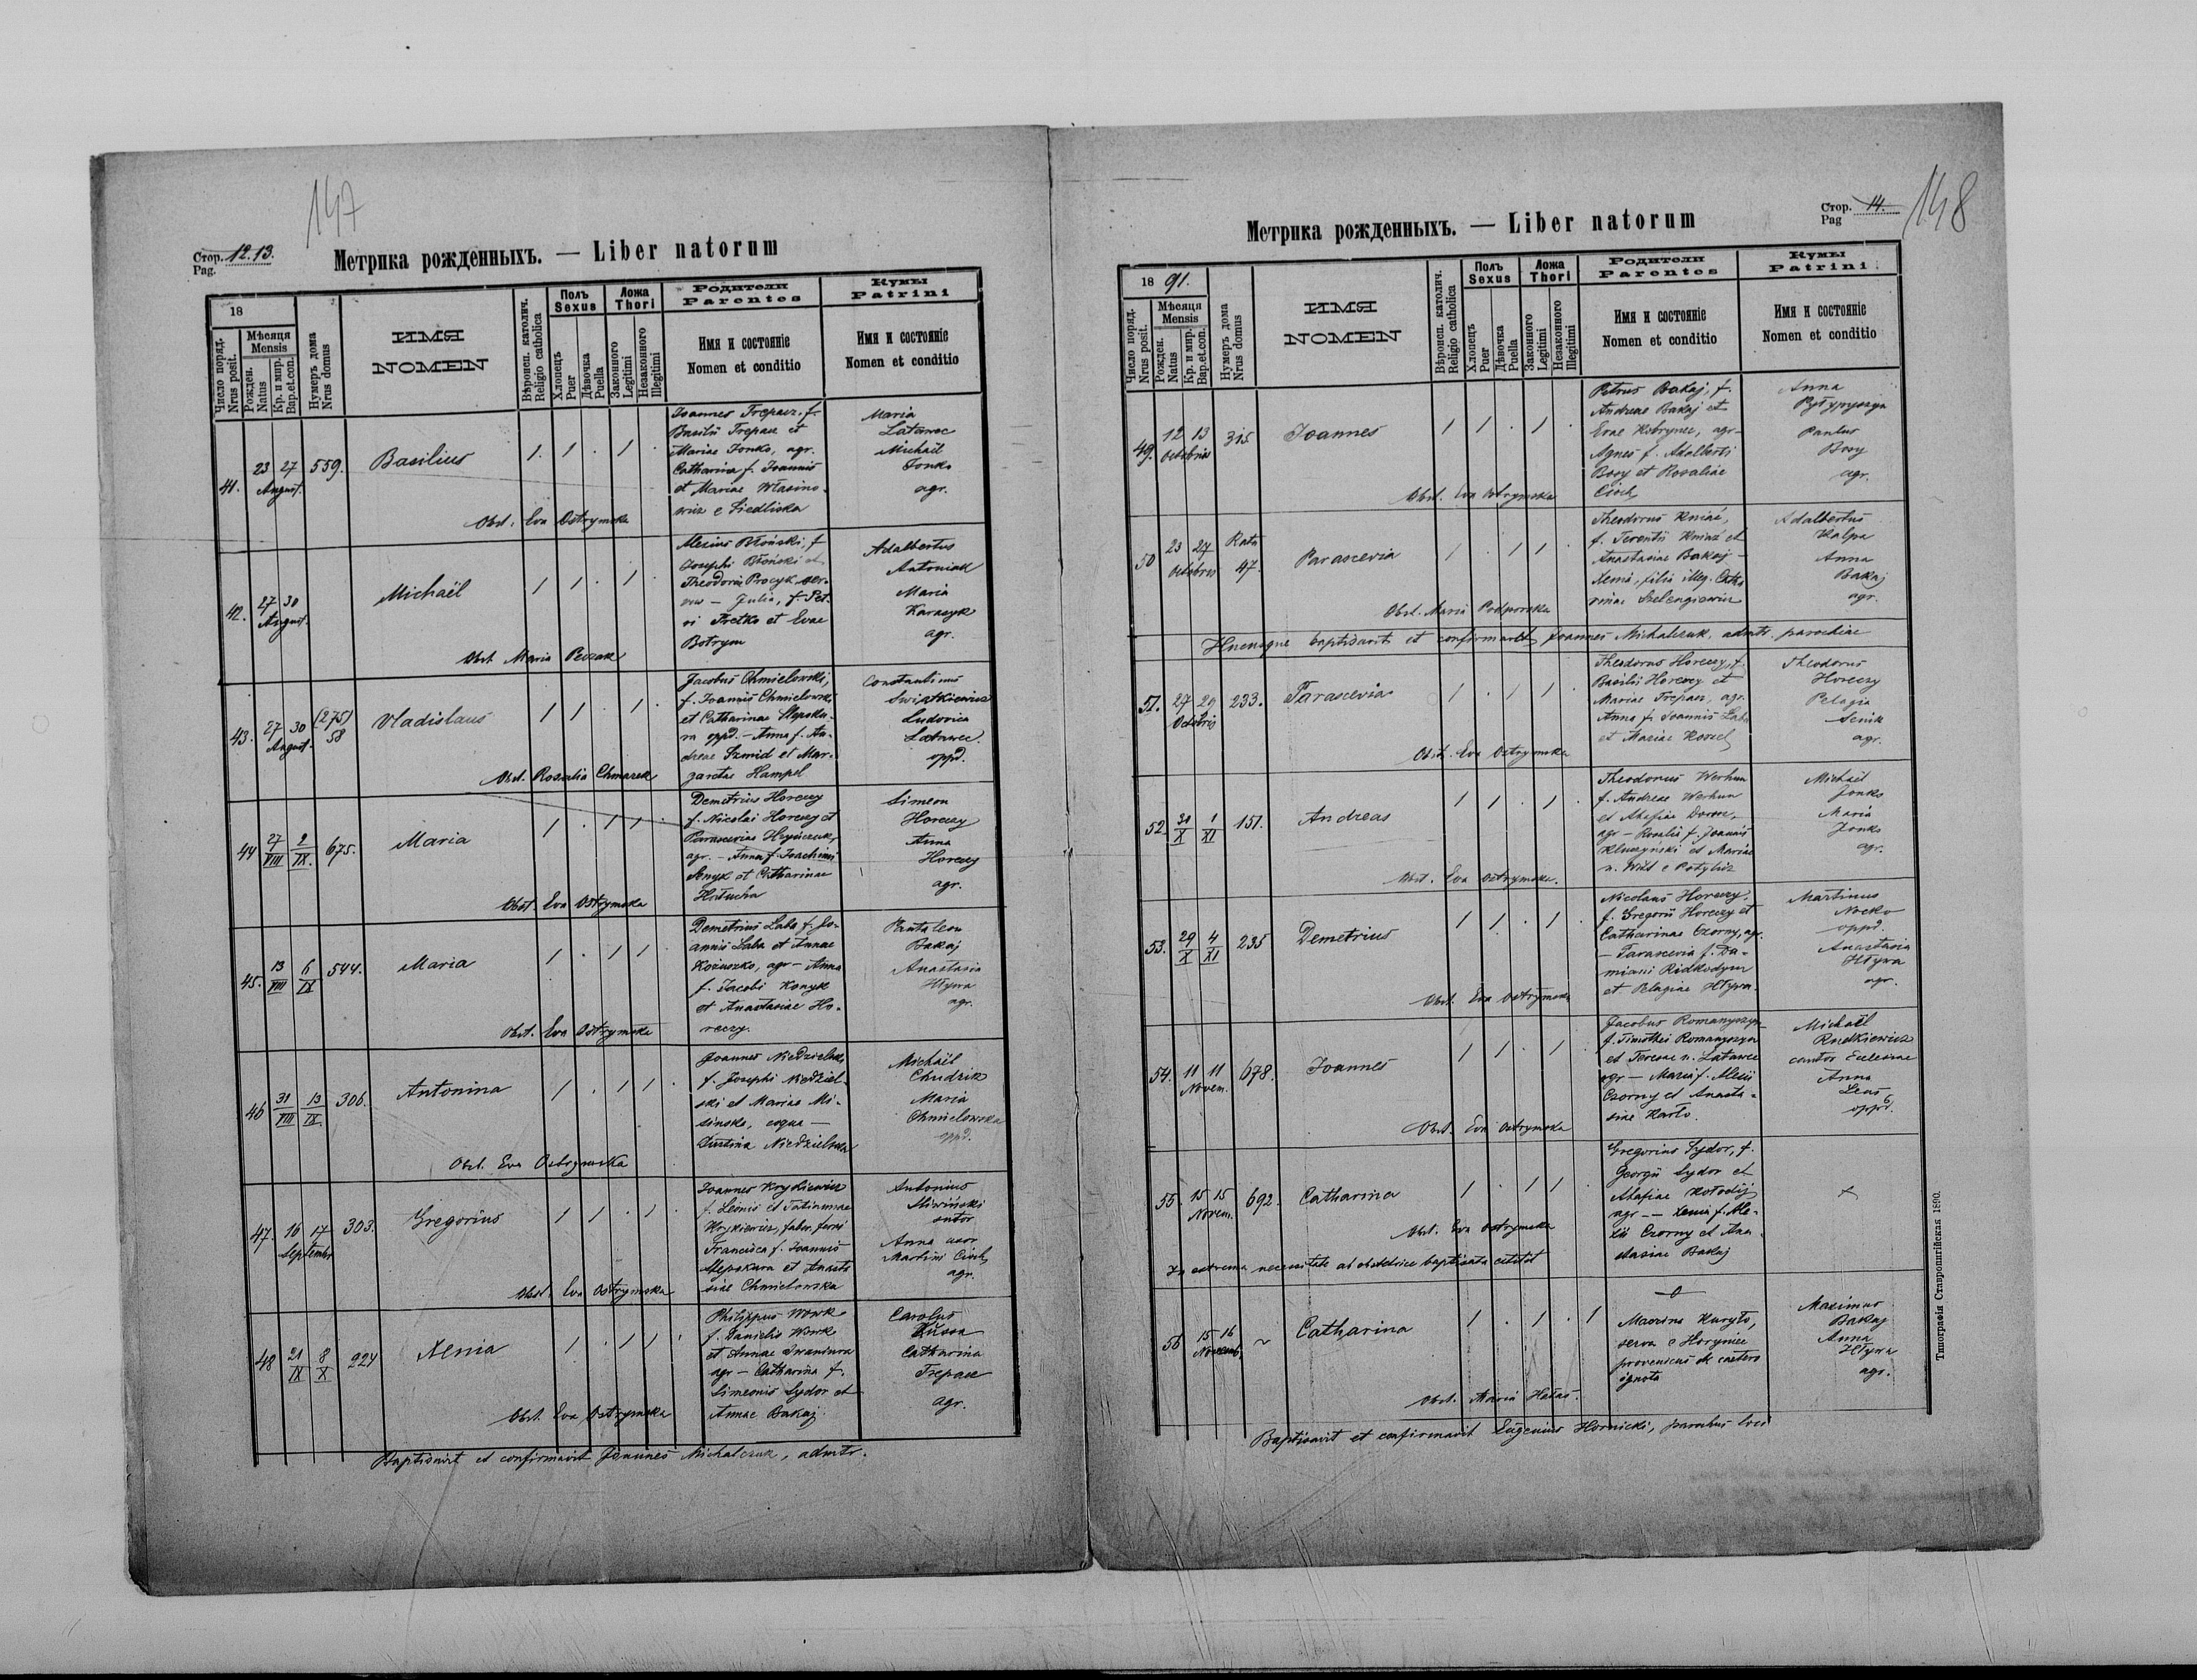 147
Стор. 12.13.
Pag.
Метрика рожденныхъ. — Liber natorum
18
Число поряд.
Nrus posit.
Мѣсяця
Mensis
Рожден.
Natus
Кр. и мир.
Bap.et.con.
Нумеръ дома
Nrus domus
ИМЯ
NOMEN
Вѣроисп. католич.
Religio catholica
Полъ
Sexus
Хлопецъ
Puer
Дѣвочка
Puella
Ложа
Thori
Законного
Legitimi
Незаконного
Illegitimi
Родители
Parentes
Имя и состояніе
Nomen et conditio
Кумы
Patrini
Имя и состояніе
Nomen et conditio
41. 23 27 August. 559. Basilius 1. 1 . 1 .
Joannes Trepacz, f.
Basilii Trepacz et
Mariae Jonko, agr.
Catharina f. Joannis
et Mariae Własino-
wicz e Siedliska
Maria
Latawec
Michaël
Jonko
agr.
Obst. Eva Ostrymska
42. 27 30 August. Michaël 1 1 . 1 .
Alexius Błoński, f.
Josephi Błoński et
Theodoriae Procyk ser-
vus — Julia, f. Pet-
ri Fretko et Evae
Botryn
Adalbertus
Antoniak
Maria
Karaszyk
agr.
Obst. Maria Peczak
43. 27 30 August. (275) 58 Vladislaus 1 1 . 1 .
Jacobus Chmielowski,
f. Joannis Chmielowski
et Catharinae Slepoku-
ra oppd. — Anna f. An-
dreae Szmid et Mar-
garetae Hampel
Constantinus
Swiątkiewicz
Ludovica
Latawec
oppd.
Obst. Rosalia Chmarek
44 27/VIII 2/IX. 675. Maria 1 . 1 1 .
Demetrius Horeczy
f. Nicolai Horeczy et
Parasceviae Hryńczuk,
agr. — Anna f. Joachimi
Senyk et Catharinae
Hałucha
Simeon
Horeczy
Anna
Horeczy
agr.
Obst. Eva Ostrymska
45. 13/VIII 6/IX 544. Maria 1 . 1 1
Demetrius Laba f. Jo-
annis Laba et Annae
Kożuszko, agr — Anna
f. Jacobi Konyk
et Anastasiae Ho-
reczy.
Pantaleon
Bakaj
Anastasia
Hływa
agr.
Obst. Eva Ostrymska
46 31/VIII 13/IX. 306. Antonina 1 . 1 1 .
Joannes Niedzielski
f. Josephi Niedziel-
ski et Mariae Mi-
sinska, coqua —
Justina Niedzielska
Michaël
Chudzik
Maria
Chmielowska
oppd.
Obst. Eva Ostrymska
47. 16 17 Septembr 303. Gregorius 1 1 . 1 .
Joannes Krykiewicz
f. Leonis et Tatiannae
Krykiewicz, faber ferri
Francisca f. Joannis
Slepokura et Anasta
siae Chmielowska
Antonius
Sliwiński
sutor
Anna uxor
Martini Cioch
agr.
Obst. Eva Ostrymska
48 21/IX 8/X 224 Xenia 1 . 1 1 .
Philippus Wowk
f. Danielis Wowk
et Annae Iwaniura
agr — Catharina f.
Simeonis Sydor et
Annae Bakaj.
Carolus
Catharina
Trepacz
agr.
Obst. Eva Ostrymska
Baptisavit et confirmavit Joannes Michalczuk, admtr.
Стор. 14.
Pag
148
Метрика рожденныхъ. — Liber natorum
18 91.
Число поряд.
Nrus posit.
Мѣсяця
Mensis
Рожден.
Natus
Кр. и мир.
Bap.et.con.
Нумеръ дома
Nrus domus
ИМЯ
NOMEN
Вѣроисп. католич.
Religio catholica
Полъ
Sexus
Хлопецъ
Puer
Дѣвочка
Puella
Ложа
Thori
Законного
Legitimi
Незаконного
Illegitimi
Родители
Parentes
Имя и состояніе
Nomen et conditio
Кумы
Patrini
Имя и состояніе
Nomen et conditio
49. 12 13 Octobris 315. Joannes 1 1 . 1 .
Petrus Bakaj, f.
Andreae Bakaj et
Evae Kobrynec, agr —
Agnes f. Adalberti
Bosy et Rosaliae
Cioch
Anna
Paulus
Bosy
agr.
Obst. Eva Ostrymska
50 23 27 Octobris Rata 47. Parascevia 1 . 1 1 .
Theodorus Kniaź,
f. Terentii Kniaź et
Anastasiae Bakaj —
Xenia, filia illeg. Catha
rinae Szelengiewicz
Adalbertus
Kalpa
Anna
Bakaj
agr.
Obst. Maria Podporska
Hucusque baptisavit et confirmavit Joannes Michalczuk, admtr. parochiae
51. 27 29 Octobris 233. Parascevia 1 . 1 1 .
Theodorus Horeczy, f.
Basilii Horeczy et
Mariae Trepacz, agr.
Anna f. Joannis Laba
et Mariae Kossel
Theodorus
Horeczy
Pelagia
Senik
agr.
Obst. Eva Ostrymska
52. 31/X 1/XI 151. Andreas 1 1 . 1 .
Theodorus Werhun
f. Andreae Werhun
et Ahafiae Dorosz,
agr — Rosalia f. Joannis
Kluczyński et Mariae
n. Wilk e Potylicz
Michaël
Jonko
Maria
Jonko
agr.
Obst. Eva Ostrymska.
53. 29/X 4/XI 235 Demetrius 1 1 . 1 .
Nicolaus Horeczy,
f. Gregorii Horeczy et
Catharinae Czorny, agr.
— Parascevia f. Da-
miani Ridkodym
et Pelagiae Hływa.
Martinus
Nocko
oppd.
Anastasia
Hływa
agr.
Obst. Eva Ostrymska
54. 11 11 Novem. 678. Joannes 1 1 . 1 .
Jacobus Romanyszyn
f. Timothei Romanyszyn
et Teresae n. Latawec
agr — Maria f. Alexii
Czorny et Anasta-
siae Karlo.
Michaël
Rudkiewicz
cantor Ecclesiae
Anna
Leus
oppd.
Obst. Eva Ostrymska
55. 15 15 Novem. 692. Catharina 1 . 1 1 .
Gregorius Sydor, f.
Georgii Sydor et
Ahafiae Kołodij
agr — Xenia f. Ale-
xii Czorny et Ana-
stasiae Bakaj
Obst. Eva Ostrymska
In extrema necessitate ab obstetrice baptisata extitit
56 15 16 Novemb. ~ Catharina 1 . 1 . 1
Kuryło,
serva e Horyniec
proveniens de caetero
ignota
Maximus
Bakaj
Anna
Hływa
agr.
Obst. Maria Hałas.
Baptisavit et confirmavit Eugenius Hornicki, parochus loci
Типографія Ставропигійская 1890.